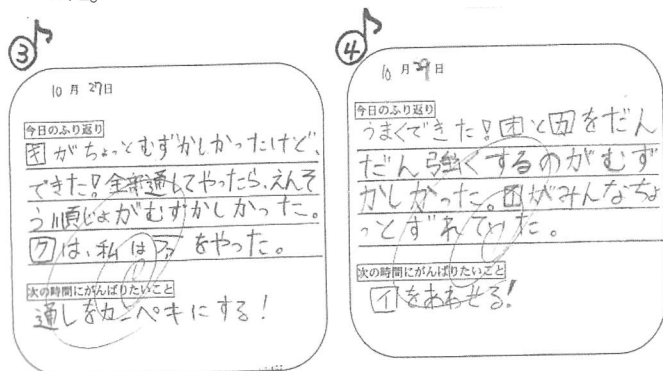 ③
10月27日
今日のふり返り
キがちょっとむずかしかったけど、
できた!全部通してやったら、えんそ
う順じょがむずかしかった。
クは、私はファをやった。
次の時間にがんばりたいこと
通しをカンペキにする!
④
10月29日
今日のふり返り
うまくできた!オとカをだん
だん強くするのがむず
かしかった。がみんなちょ
っとずれていた。
次の時間にがんばりたいこと
イをあわせる!